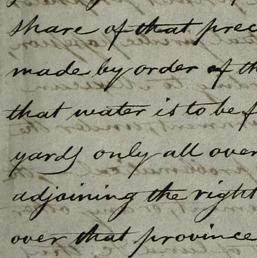 share of that prec
made by order of th
that water is to be f
yards only all over
adjoining the right
over that province